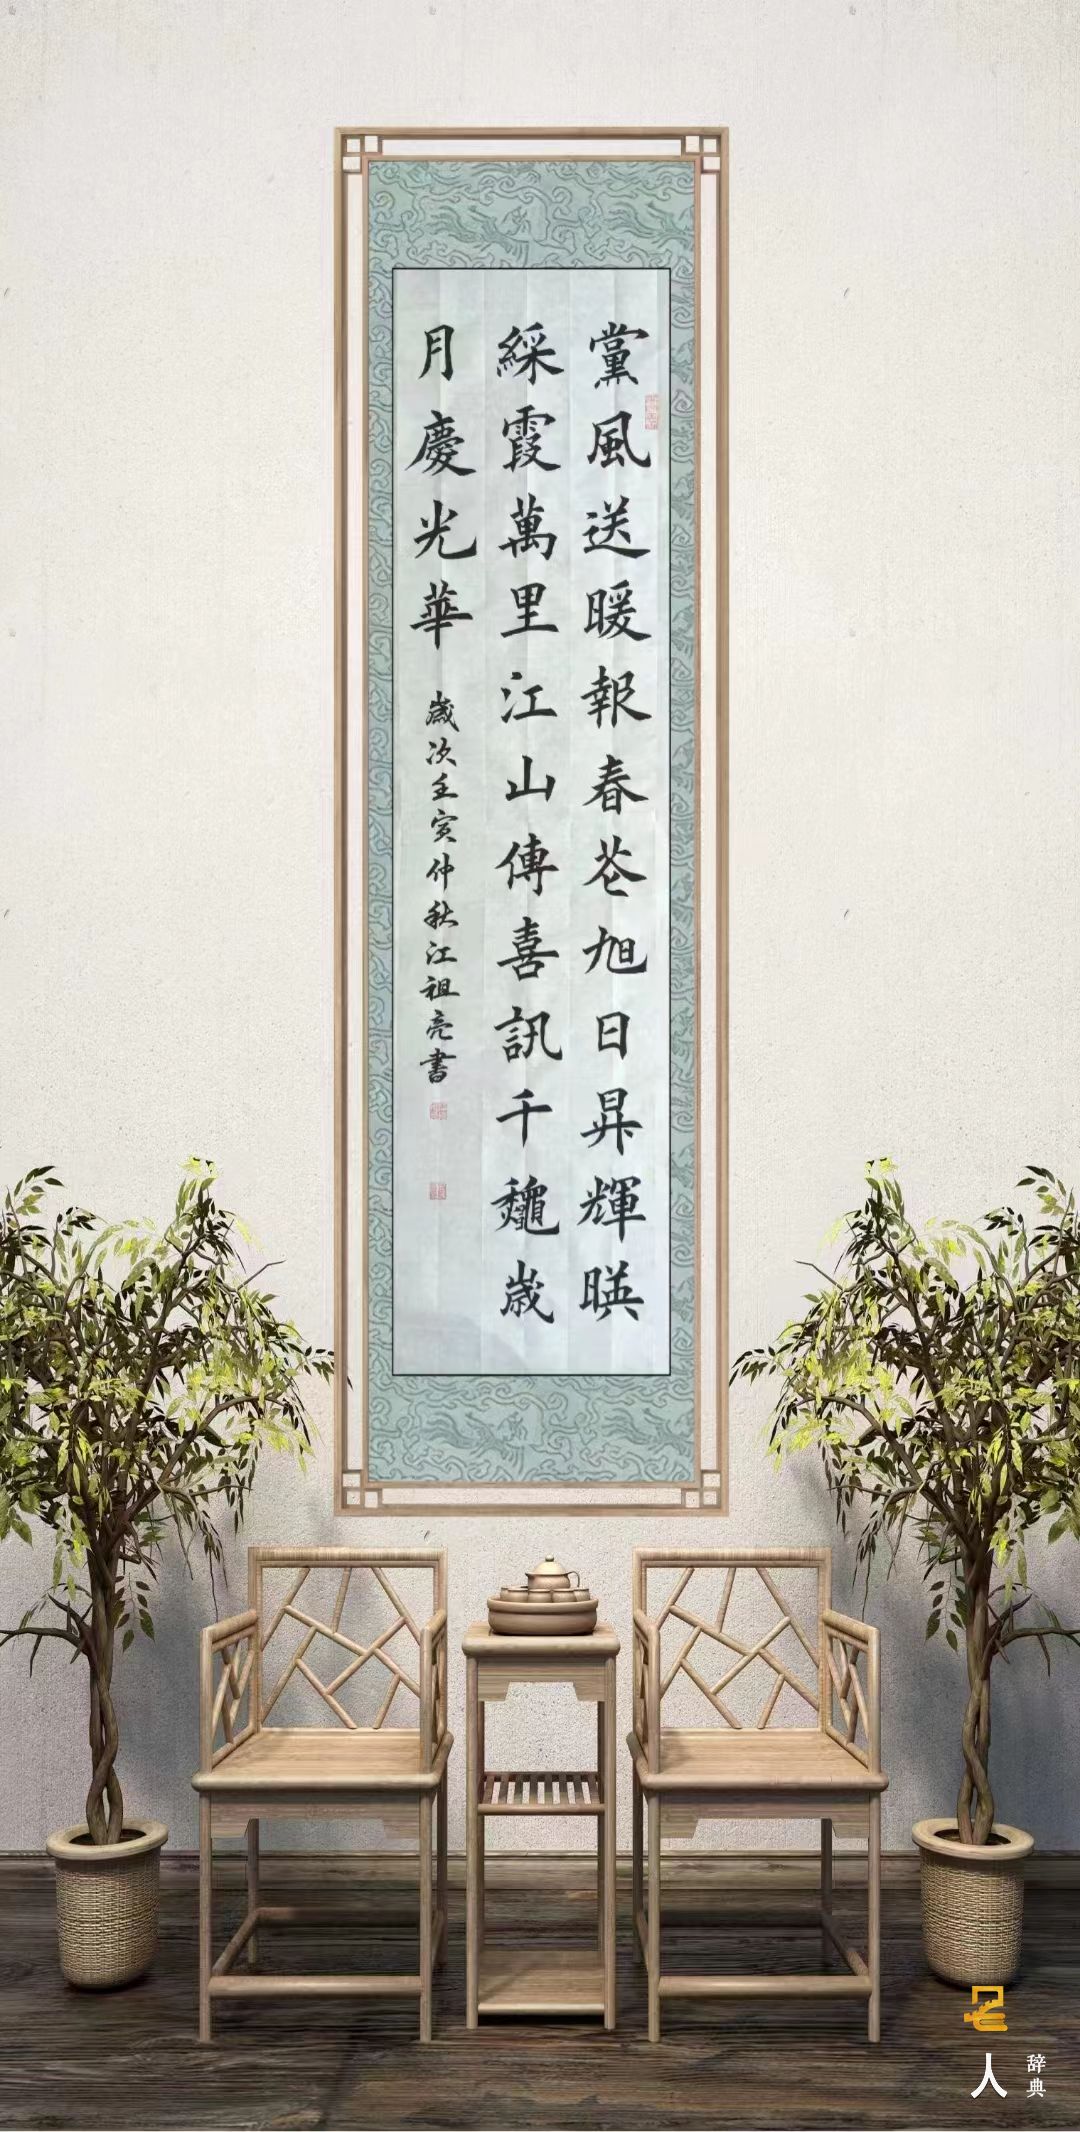 黨風送暖報春芲旭日昇輝暎
綵霞萬里江山傳喜訊千龝歲
月慶光華
歲次壬寅仲秋江祖亮書
名人
辞典